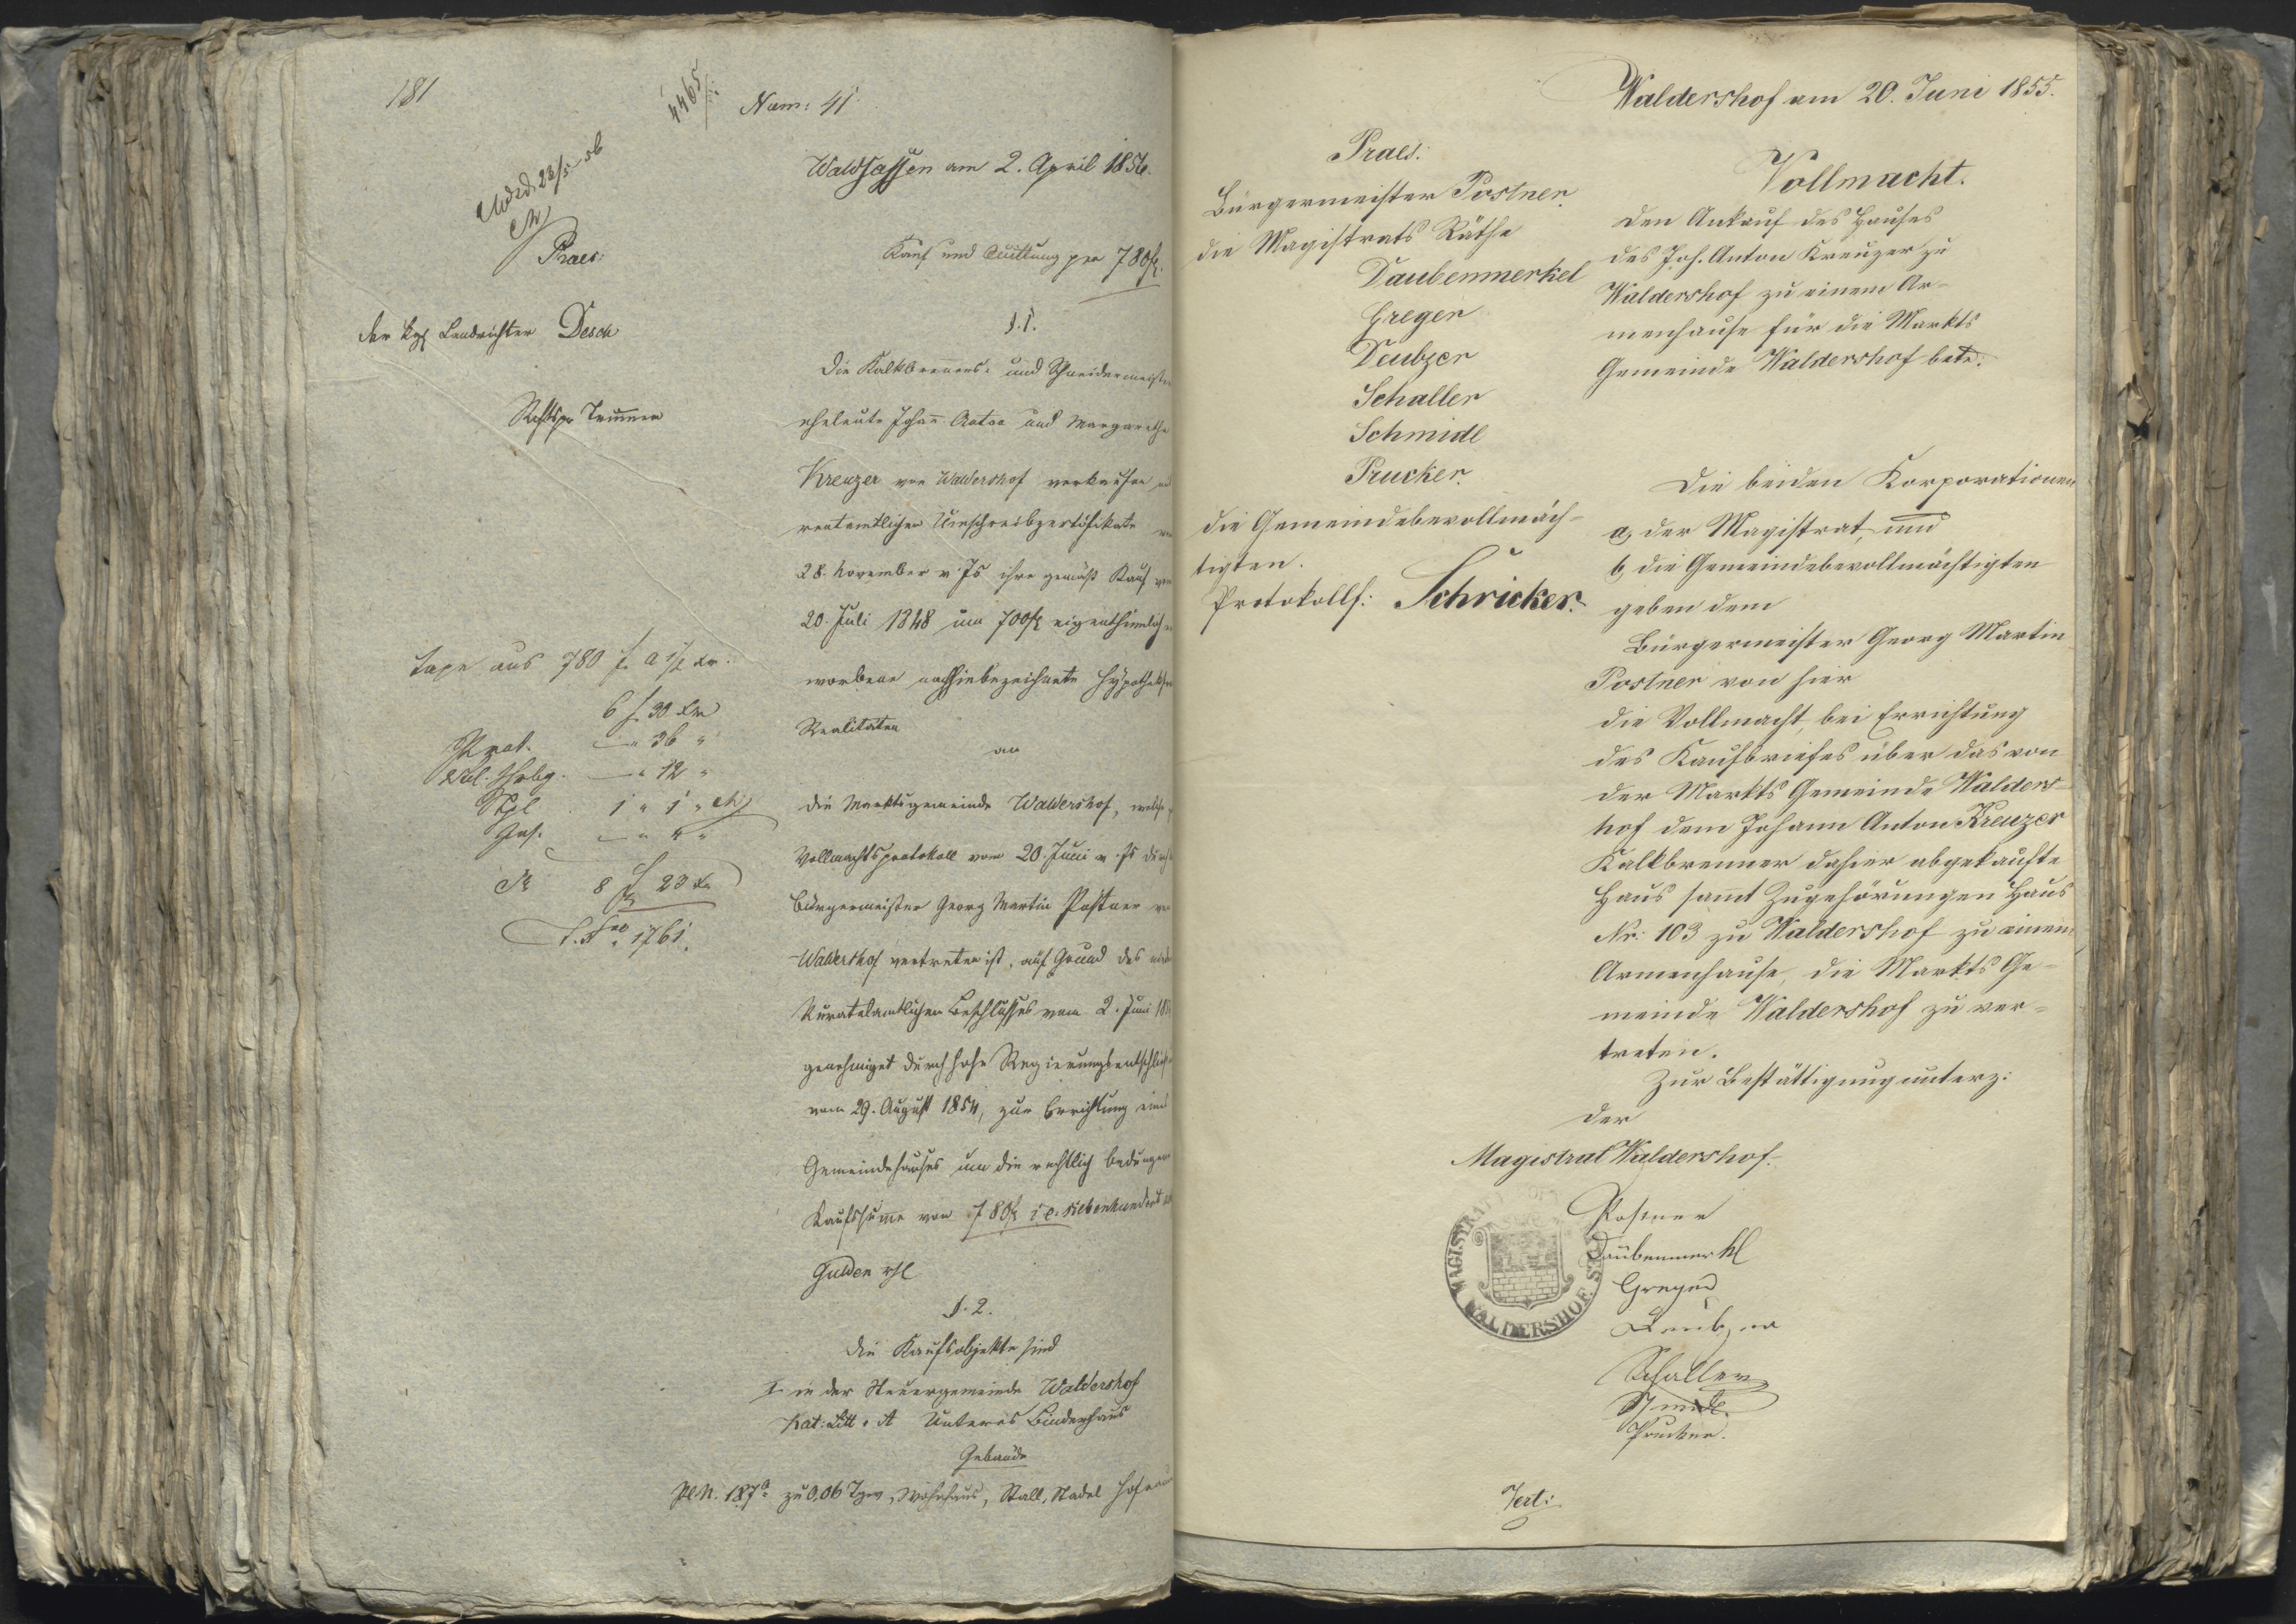 181
4465
Num: 41
Waldsassen am 2. April 1856.
Praes:
Kauf und Quittung per 780 f.
der kgl Landrichter Desch
§. 1.
Die Kalkbrenners- und Schneidermeister
eheleute Johann Anton und Margaretha
Kreuzer von Waldershof verkaufen
rentamtlichen Umschreibzertifikate
28. November v. Js ihre gemäß Kauf
20. Juli 1848 um 700 f eigenthümlich
worbene nachhinbezeichnete Hypothek
Realitäten
an
die Marktsgemeinde Waldershof, welche
Vollmachtsprotokoll vom 20. Juni v. Js durch
Bürgermeister Georg Martin Postner
Waldershof vertreten ist, auf Grund des
Kuratelamtlichen Beschlusses vom 2. Juni
genehmiget durch hohe Regierungsentschließ
vom 29. August 1854, zur Errichtung eines
Gemeindehauses um die rechtlich bedungene
Kaufssumme von 780 f i.e. siebenhundert
Gulden rhl
§. 2.
Die Kaufsobjekte sind
I in der Steuergemeinde Waldershof
Kat: Litt. A Unteres Binderhaus
Gebäude
Pl.N. 187a zu 0,06 Tgw, Wohnhaus, Stall, Stadel Hofraum
Taxe aus 780 f a 1/2 xr.
6 f 30 xr
Prot. — " 36 "
— " 12 "
1 " 1 "
— " 4 "
8 f 23 xr
1761.
Waldershof am 20. Juni 1855.
Praes:
Bürgermeister Postner.
die Magistrats Räthe
Daubenmerkel
Greger
Deubzer
Schaller
Schmidl
Prucker.
die Gemeindebevollmäch-
tigten.
Protokollf: Schricker.
Vollmacht.
den Ankauf des Hauses
des Joh. Anton Kreuzer zu
Waldershof zu einem Ar-
menhause für die Markts
Gemeinde Waldershof betr.
Die beiden Korporationen
a, der Magistrat, und
b, die Gemeindebevollmächtigten
geben dem
Bürgermeister Georg Martin
Postner von hier
die Vollmacht, bei Errichtung
des Kaufbriefes über das von
der Markts Gemeinde Walders-
hof dem Johann Anton Kreuzer
Kalkbrenner dahier abgekaufte
Haus sammt Zugehörungen Haus
Nr: 103 zu Waldershof zu einem
Armenhause, die Markts Ge-
meinde Waldershof zu ver-
treten.
Zur Bestättigung unterz:
der
Magistrat Waldershof.
MAGISTRAT WALDERSHOF
Postner
Daubenmerkl
Greger
Deubzer
Schaller
Schmidl.
Prucker.
Vert: